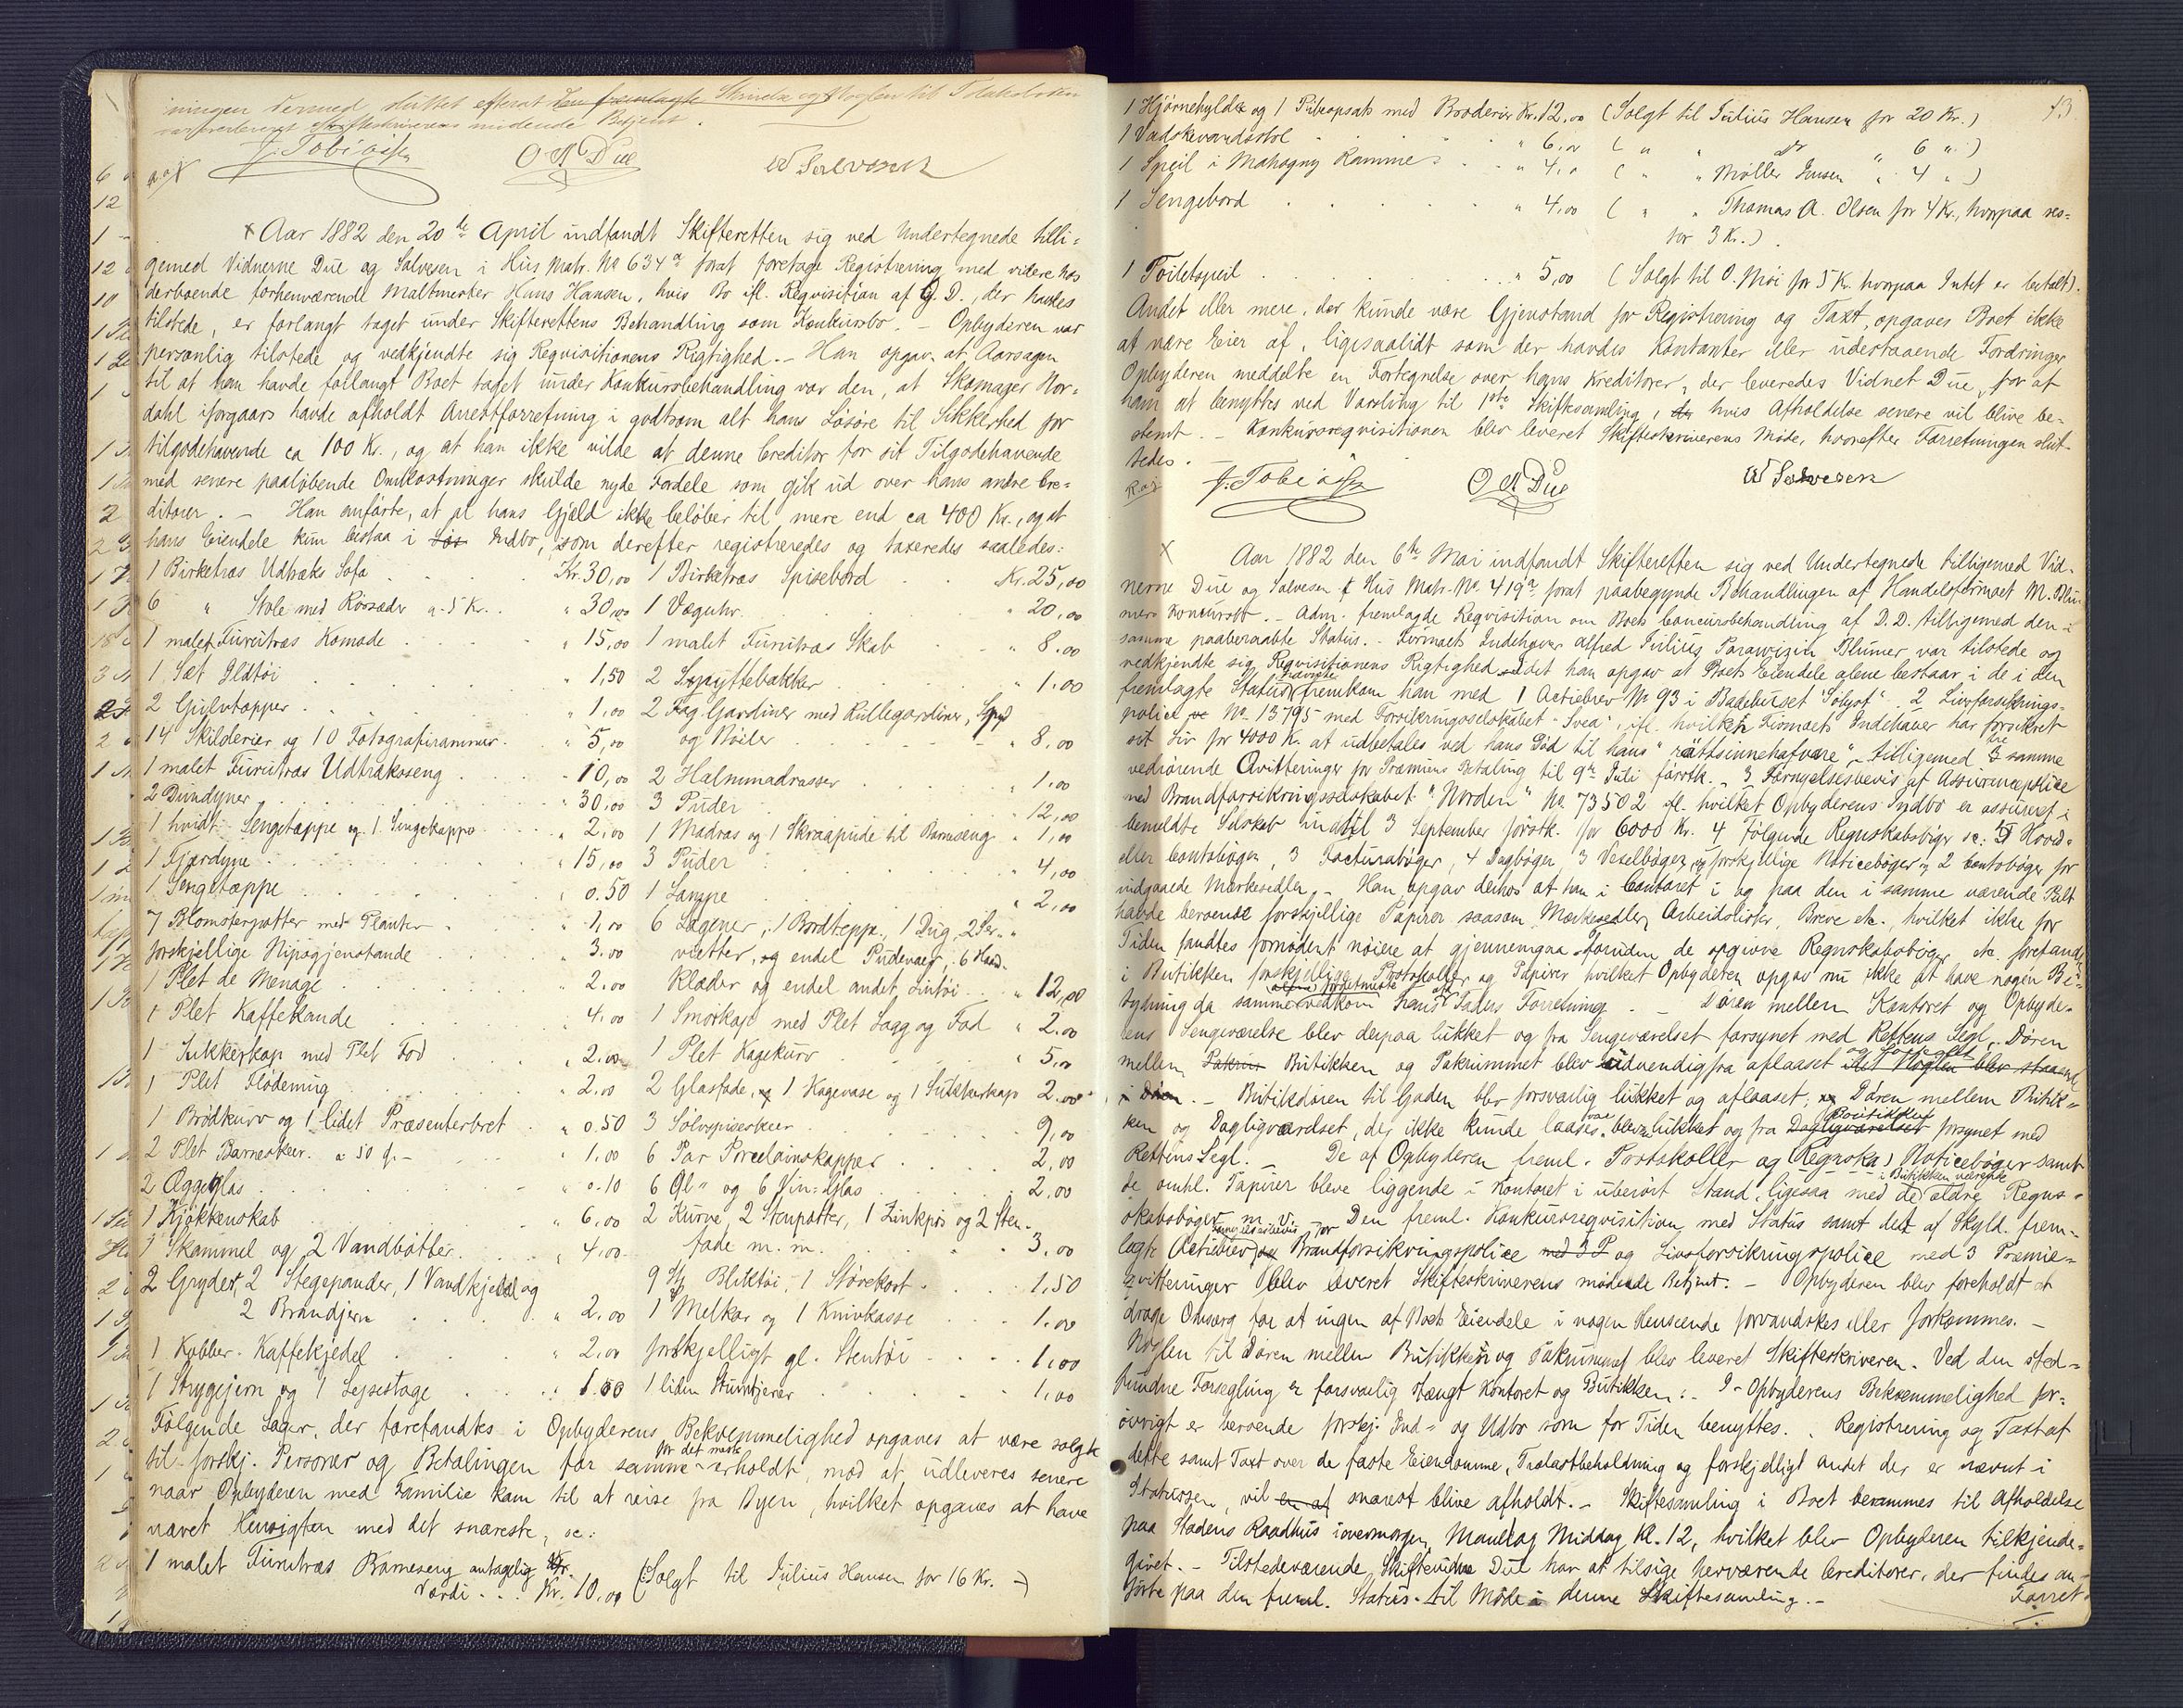 ningen dermed sluttet efterat den fremlagte Skrivelse og Nøglen til Pakboden
var overleveret Skifteskriverens mødende Betjent.
J. Tobiassen O N Due W Salvesen
Aar 1882 den 20de April indfandt Skifteretten sig ved Undertegnede tilli-
gemed Vidnerne Due og Salvesen i Hus Matr. No 634a forat foretage Registrering med videre hos
derboende forhenværende Maltmester Hans Hansen, hvis Bo ifl. Reqvisition af G. D., der havdes
tilstede, er forlangt taget under Skifterettens Behandling som Konkursbo. – Opbyderen var
personlig tilstede og vedkjendte sig Reqvisitionens Rigtighed. – Han opgav, at Aarsagen
til at han havde forlangt Boet taget under Konkursbehandling var den, at Skomager Nor-
dahl iforgaars havde afholdt Arrestforretning i godtsom alt hans Løsøre til Sikkerhed for
tilgodehavende ca 100 Kr., og at han ikke vilde at denne Creditor for sit Tilgodehavende
med senere paaløbende Omkostninger skulde nyde Fordele som gik ud over hans andre Cre-
ditorer. – Han anførte, at al hans Gjæld ikke beløber til mere end ca 400 Kr., og at
hans Eiendele kun bestaa i Løs Indbo, som derefter registreredes og taxeredes saaledes:
1 Birketræs Udtræks Sofa Kr. 30,00 1 Birketræs Spisebord Kr. 25,00
6 " Stole med Rørsæder a 5 Kr. " 30,00 1 Væguhr " 20,00
1 malet Furutræs Komode " 15,00 1 malet Furutræs Skab " 8.00
1 Sæt Ildtøi " 1,50 2 Spyttebakker " 1.00
2 Gulvtæpper " 1,00 2 Fag Gardiner med Rullegardiner, Spyd
14 Skilderier og 10 Fotografirammer " 5,00 og Nøiler " 8,00
1 malet Furutræs Udtræksseng " 10,00 2 Halmmadrasser " 1.00
2 Dundyner " 30.00 3 Puder " 12,00
1 hvidt Sengetæppe og 1 Sengekappe " 2,00 1 Madras og 1 Skraapude til Barneseng " 1,00
1 Fjærdyne " 15,00 3 Puder " 4,00
1 Sengetæppe " 0.50 1 Lampe " 2,00
7 Blomsterpotter med Planter " 1,00 6 Lagener, 1 Bordteppe, 1 Dug, 2 Ser-
forskjellige Nipsgjenstande " 3.00 vietter, og endel Pudevaer, 6 Haand-
1 Plet de Menage " 2.00 klæder og endel andet Lintøi " 12,00
1 Plet Kaffekande " 4.00 1 Smørkop med Plet Laag og Fad " 2.00
1 Sukkerkop med Plet Fod " 2.00 1 Plet Kagekurv " 5,00
1 Plet Flødemug " 2.00 2 Glasfade, og 1 Kagevase og 1 Sukkerkop 2.00
1 Brødkurv og 1 lidet Præsenterbret " 0.50 3 Sølvspiseskeer 9,00
2 Plet Barneskeer a 50 Ør " 1.00 6 Par Porcelainskopper 2,00
2 Æggeglas " 0.10 6 Øl- og 6 Vin-Glas 2,00
1 Kjøkkenskab " 6,00 2 Kurve, 2 Stenpotter, 1 Zinkpøs og 2 Sten-
1 Skammel og 2 Vandbøtter " 4,00 fade m. m. 3,00
2 Gryder, 2 Stegepander, 1 Vandkjedel og 9 St. Bliktøi, 1 Størekost 1,50
2 Brandjern " 2,00 1 Melkar og 1 Knivkasse 1.00
1 Kobber-Kaffekjedel " 2.00 forskjelligt gl. Stentøi 1,00
1 Strygejern og 1 Lysestage " 1.50 1 liden Stumtjener 1,00
Følgende Sager, der forefandtes i Opbyderens Bekvemmelighed opgaves at være solgte
til forskj. Personer og Betalingen for samme for det meste erholdt, mod at udleveres senere
naar Opbyderen med Familie kom til at reise fra Byen, hvilket opgaves at have
været Hensigten med det snareste, sc:
1 malet Furutræs Barneseng antagelig Kr.
Værdi Kr. 10,00 (Solgt til Julius Hansen for 16 Kr.)
13.
1 Hjørnehylde og 1 Pibeopsats med Broderie Kr. 12,00 (Solgt til Julius Hansen for 20 Kr.)
1 Vadskevandsstol " 6,00 ( " " Do " 6 " )
1 Speil i Mahogny Ramme " 4,00 ( " " Møller Jensen " 4 " )
1 Sengebord " 4,00 ( " " Thomas A. Olsen for 4 Kr., hvorpaa res-
ter 3 Kr.)
1 Toiletspeil " 5,00 (Solgt til O. Moi for 5 Kr. hvorpaa Intet er betalt).
Andet eller mere, der kunde være Gjenstand for Registrering og Taxt, opgaves Boet ikke
at være Eier af, ligesaalidt som der havdes Kontanter eller udestaaende Fordringer
Opbyderen meddelte en Fortegnelse over hans Kreditorer, der leveredes Vidnet Due, for af
ham at benyttes ved Varsling til 1ste Skiftesamling, hvis Afholdelse senere vil blive be-
stemt. – Konkursreqvisitionen blev leveret Skifteskriverens Møde, hvorefter Forretningen slut-
tedes. –
J. Tobiassen O N Due W Salvesen
Aar 1882 den 6te Mai indfandt Skifteretten sig ved Undertegnede tilligemed Vid-
nerne Due og Salvesen i Hus Matr. No. 419a forat paabegynde Behandlingen af Handelsfirmaet M. Blu-
mers Konkursbo. – Adm. fremlagde Reqvisition om Boets Concursbehandling af D.D. tilligemed den i
samme paaberaabte Status. – Firmaets Indehaver Alfred Julius Parawizin Blumer var tilstede og
vedkjendte sig Reqvisitionens Rigtighed idet han opgav at Boets Eiendele alene bestaar i de i den
fremlagte Status nævnte fremkom han med 1 Actiebrev No 93 i Badehuset "Solyst". 2 Livforsikrings-
police No. 13795 med Forsikringsselskabet "Svea", ifl. hvilken Firmaets Indehaver har forsikret
sit Liv for 4000 K. at udbetales ved hans Død til hans "rättsinnehafvare", tilligemed tre samme
vedrørende Qvitteringer for Præmiens Betaling til 9de Juli førstk. – 3 Fornyelsesbevis af Assurancepolice
med Brandforsikringsselskabet "Norden" No. 73502 ifl. hvilket Opbyderens Indbo er assureret i
bemeldte Selskab indtil 3 September førstk. for 6000 Kr. 4 Følgende Regnskabsbøger sc: 5 Hoved-
eller Contobøger, 3 Facturabøger, 4 Dagbøger, 3 Vexelbøger, og forskjellige Noticebøger og 2 Contobøger for
indgaaede Mærkesedler. – Han opgav derhos at han i Contoret i og paa den i samme værende Pult
havde beroende forskjellige Papirer saasom Mærkesedler, Arbeidslister, Breve etc., hvilket ikke for
Tiden fandtes fornødent nøiere at gjennemgaa. Foruden de opgivne Regnskabsbøger etc. forefandtes
i Butikken forskjellige Protokoller og Papirer hvilket Opbyderen opgav nu ikke at have nogen Be-
tydning da samme alene fortrinsvis vedkom hans Faders Forretning. – Døren mellem Kontoret og Opbyde-
rens Sengeværelse blev derpaa lukket og fra Sengeværelset forsynet med Rettens Segl, Døren
mellem Butikken og Pakrummet blev udvendigfra aflaaset og forseglet idet Nøglen blev staaende
i Døren. – Butikdøren til Gaden blev forsvarlig lukket og aflaaset, Døren mellem Butik-
ken og Dagligværelset, der ikke kunde laases, blev lukket og fra Dagligværelset Butikken forsynet med
Rettens Segl. – De af Opbyderen freml. Protokoller og Regnska) Noticebøger samt
de omhl. Papirer bleve liggende i Kontoret i uberørt Stand, ligesaa med de i Butikken værende ældre Regns-
skabsbøger m. v. Den freml. Konkursreqvisition med Status samt det af Skyld. frem-
lagte Actiebrev Brandforsikringspolice og Livsforsikringspolice med 3 Præmie-
qvitteringer blev leveret Skifteskriverens mødende Betjent. – Opbyderen blev foreholdt at
drage Omsorg for at ingen af Boets Eiendele i nogen Henseende forvandskes eller forkommes. –
Nøglen til Døren mellem Butikken og Pakrummet blev leveret Skifteskriveren. Ved den sted-
fundne Forsegling er forsvarlig stængt Kontoret og Butikken. – I Opbyderens Bekvemmelighed for-
øvrigt er beroende forskj. Ind- og Udbo som for Tiden benyttes. Registrering og Taxt af
dette samt Taxt over de faste Eiendomme, Trælastbeholdning og forskjelligt andet der er nævnt i
Statusen, vil snarest blive afholdt. – Skiftesamling i Boet berammes til Afholdelse
paa Stadens Raadhus iovermorgen, Mandag Middag Kl. 12, hvilket blev Opbyderen tilkjende-
givet. – Tilstedeværende Skiftevidne Due har at tilsige herværende Creditorer, der findes an-
førte paa den freml. Status til Møde i denne Skiftesamling. – Forret-